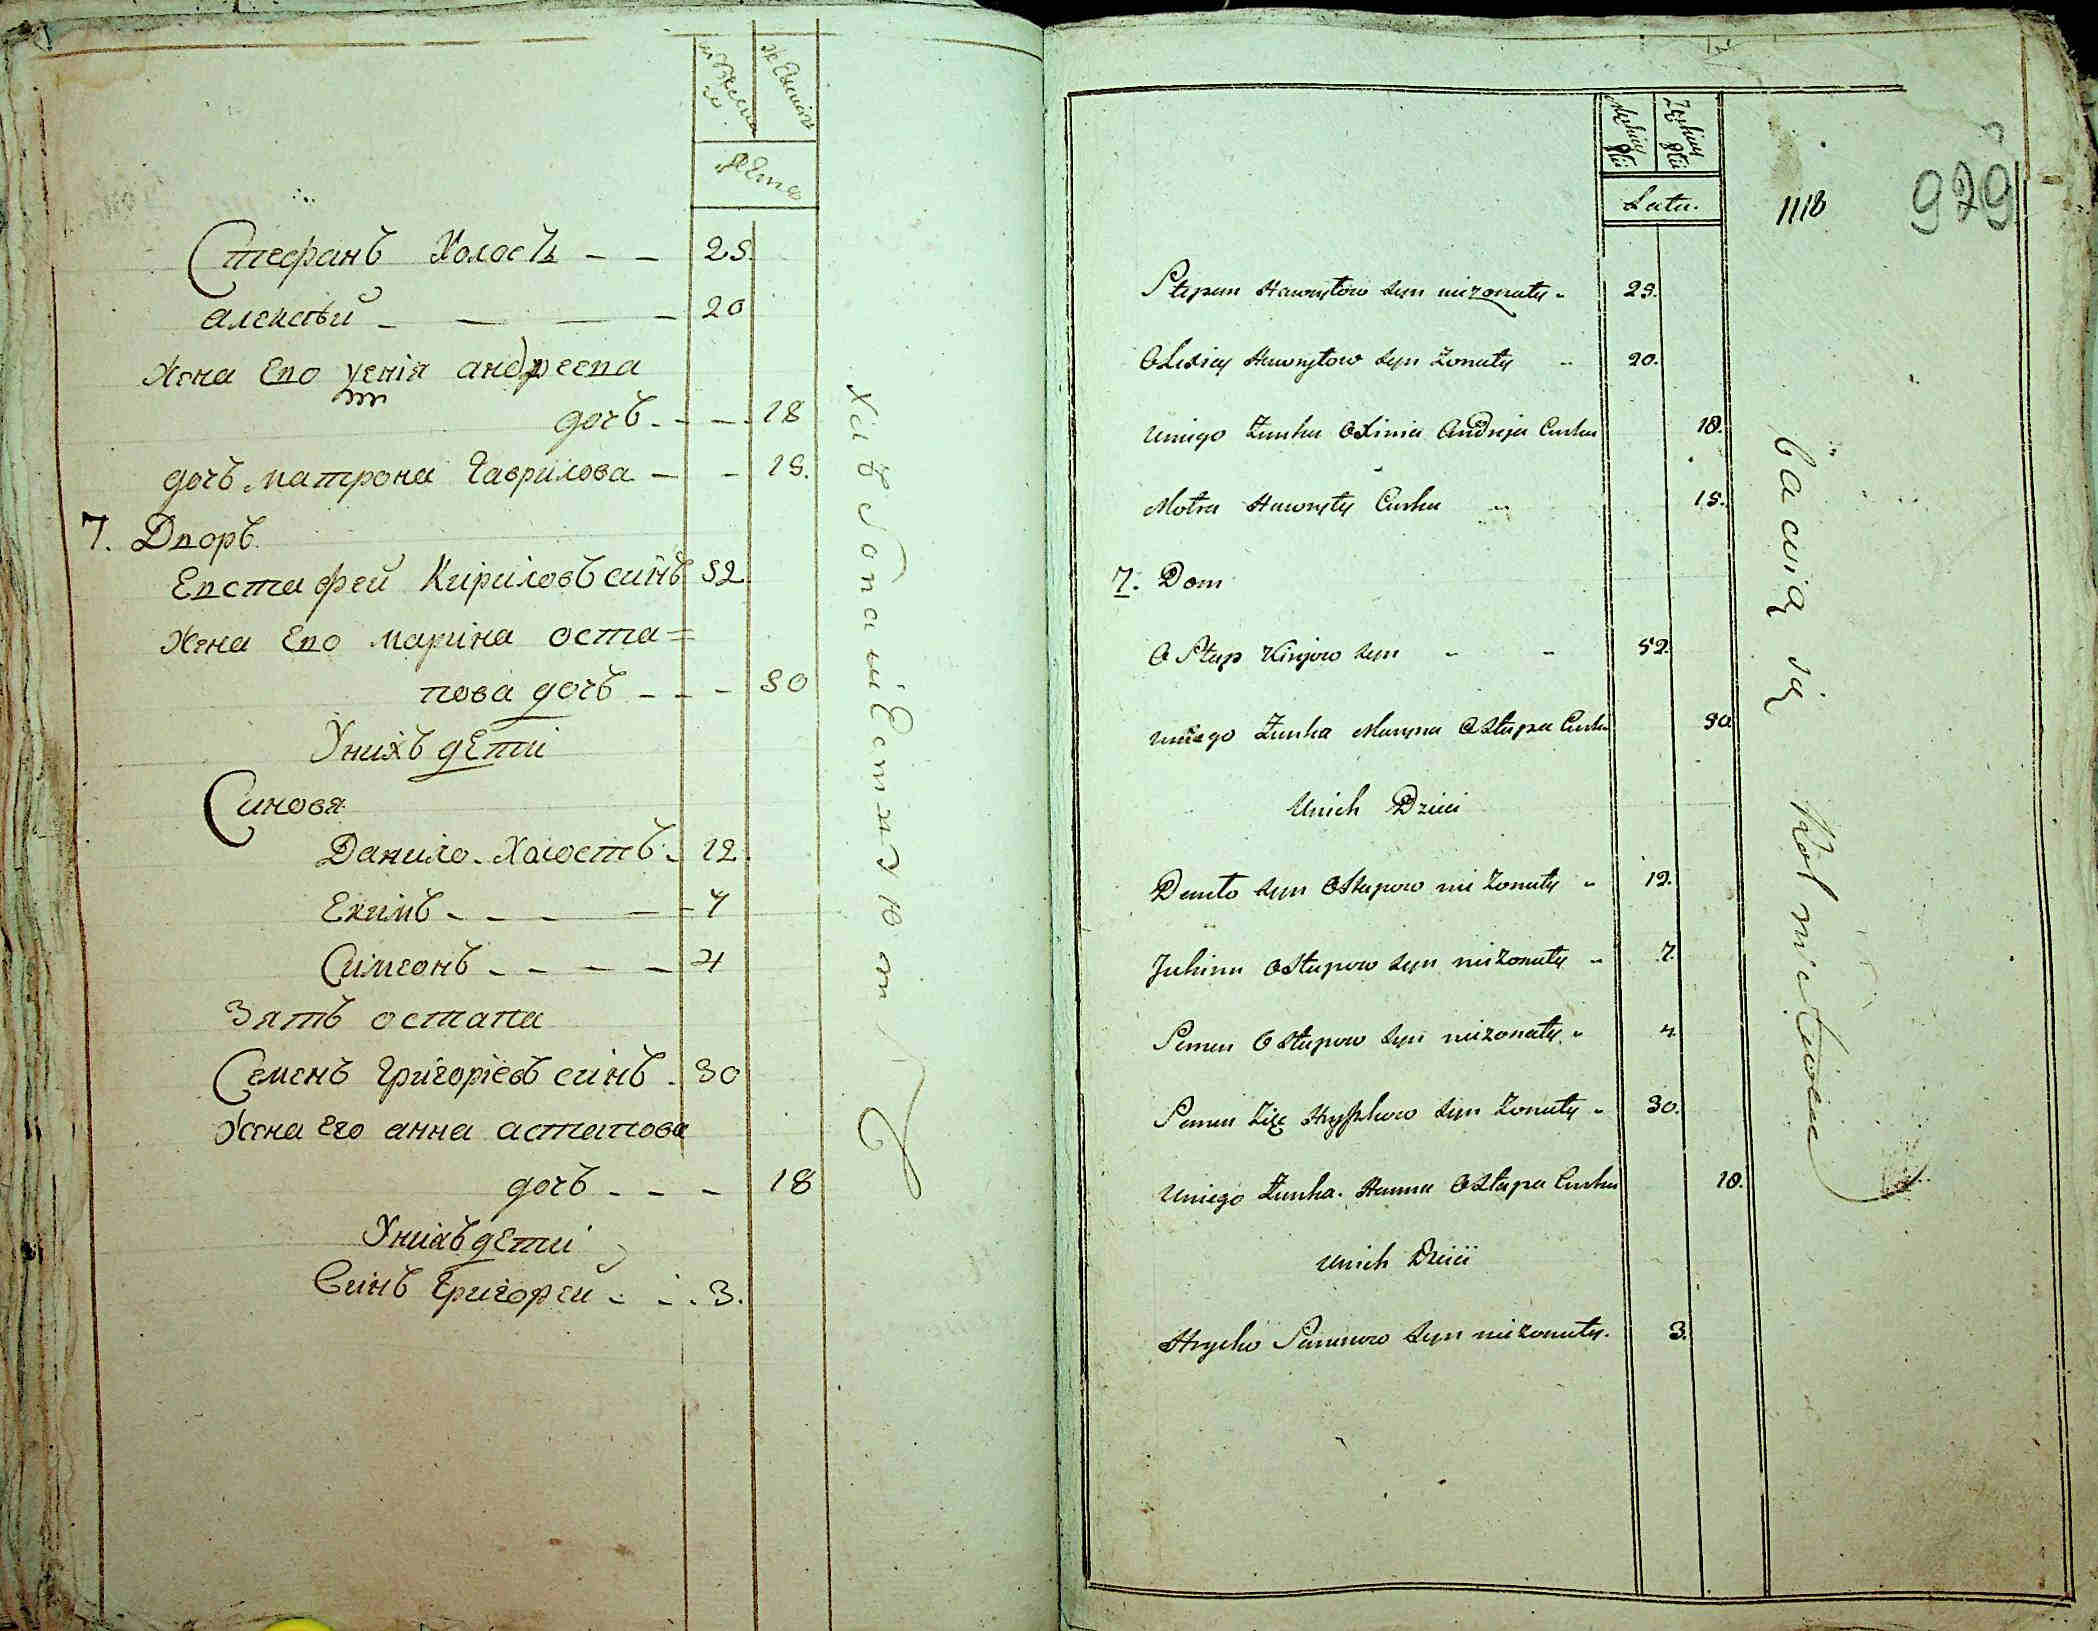 мужеска
женска
лета
Стефанъ Холостъ - - 25.
Алексѣй - - - - 20
Жена Ево Ксенія андреева
дочъ - - - 18
дочъ матрона Гаврилова - - 15.
7. Дворъ
Евстафей Кириловъ синъ 52
Жена Ево Маріна оста=
пова дочъ - - - 50
У нихъ дети
Синовя
Данило Холостъ - 12.
Екимъ - - - - 7
Симеонъ - - - - 4
Зять остапа
Семенъ Григоріевъ синъ - 30
Жена Его анна астапова
дочъ - - - 18
У нихъ дети
Синъ Григорей - - - 3.
Męskiey Płci
Żeńskiey Płci
Lata.
1118
929
Stepan Hawryłow syn nieżonaty - 25.
Olexiey Hawryłow syn żonaty - 20.
U niego Żonka Oxinia Andrieja Curka 18.
Motra Hawryły Curka - 15.
7. Dom
Ostap Kiryow syn - - 52.
U niego Żonka Maryna Ostapa Curka 50
U nich Dzieci
Daniło syn Ostapow nie żonaty - 12.
Jukim Ostapow syn nieżonaty - 7.
Semen Ostapow syn nieżonaty - 4
Semen Zięć Hryszkow syn żonaty - 30.
U niego Żonka Hanna Ostapa Curka 18.
U nich Dzieci
Hryćko Semenow syn nieżonaty. 3.
bawią się